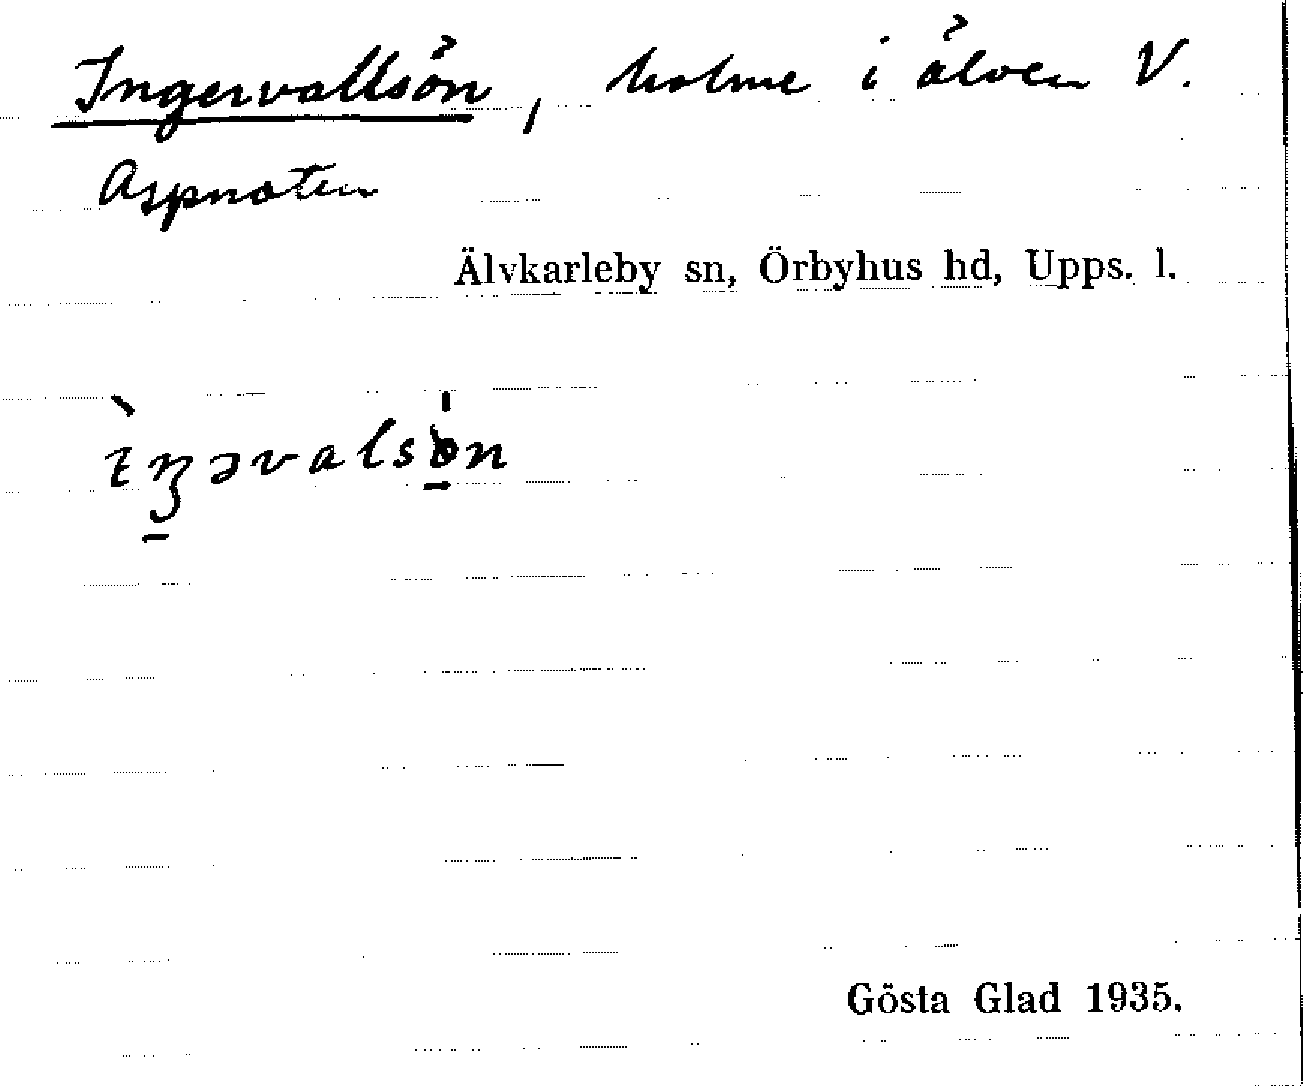 Ingervallsön, holme i älven V.
Aspnoten
Älvkarleby sn, Örbyhus hd, Upps. l.
Gösta Glad 1935.